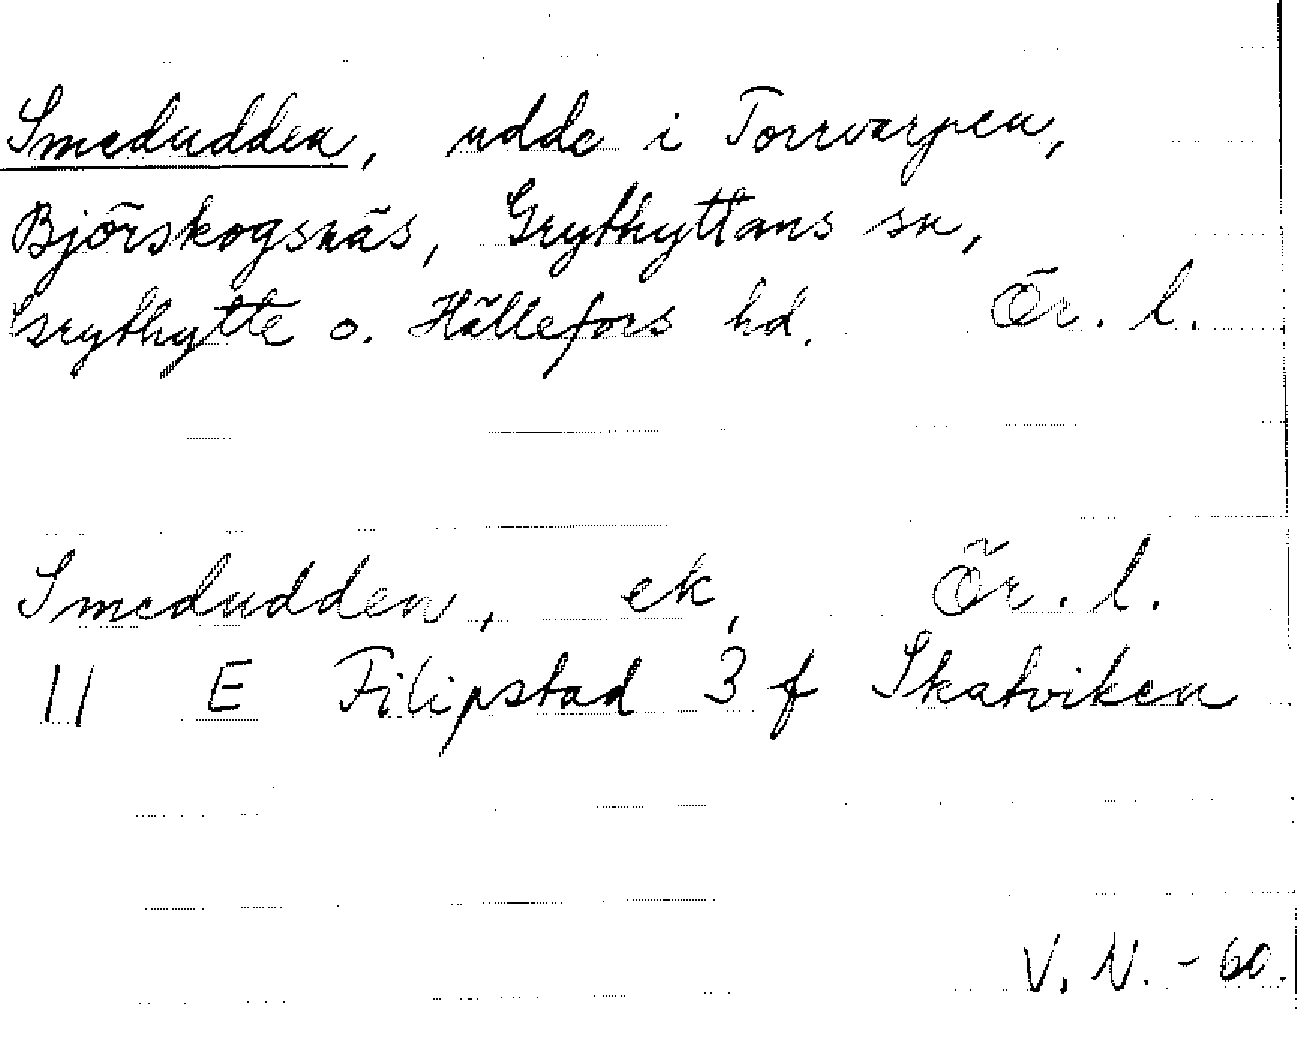 Smedudden, udde i Torrvarpen,
Björskogsnäs, Grythyttans sn,
Grythytte o. Hällefors hd. Ör. l.
Smedudden, ek, Ör. l.
11 E Filipstad 3 f Skatviken
V. N. - 60.